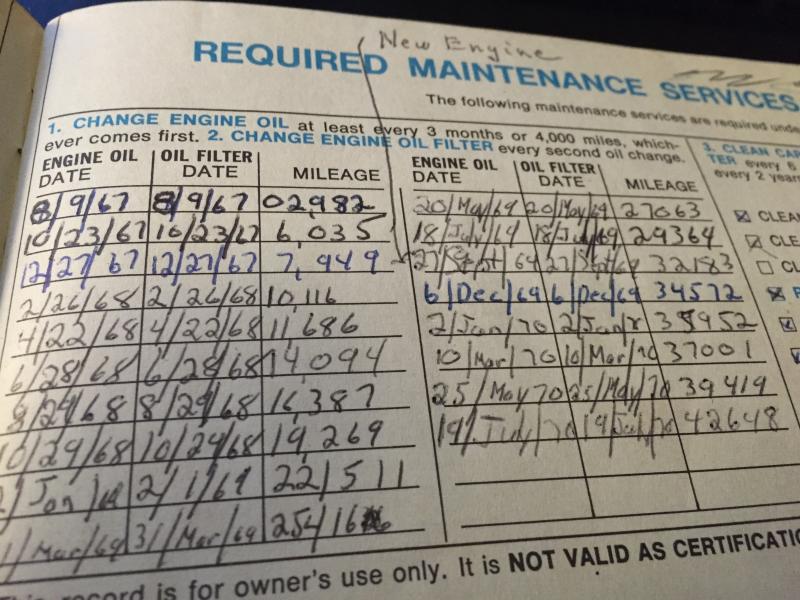 New Engine
REQUIRED MAINTENANCE SERVICES
The following maintenance services are required unde
1. CHANGE ENGINE OIL at least every 3 months or 4,000 miles, which-
ever comes first. 2. CHANGE ENGINE OIL FILTER every second oil change.
ENGINE OIL DATE OIL FILTER DATE MILEAGE
8/9/67 8/9/67 02,982
10/23/67 10/23/67 6,035
12/27/67 12/27/67 7,949
2/26/68 2/26/68 10,116
4/22/68 4/22/68 11,686
6/28/68 6/28/68 14,094
8/29/68 8/29/68 16,387
10/29/68 10/29/68 19,269
Jan 2/1/69 22,511
Mar/69 31/Mar/69 25416
ENGINE OIL DATE OIL FILTER DATE MILEAGE
20/May/69 20/May/69 27063
18/July/69 18/July/69 29364
27/Sept/69 27/Sept/69 32183
6/Dec/69 6/Dec/69 34572
2/Jan/70 2/Jan/7 35952
10/Mar/70 10/Mar/70 37001
25/May70 25/May/70 39419
19/July/70 19/July/70 42648
3. CLEAN CAR
TER every 6
every 2 year
CLEAN
CLE
CL
This record is for owner's use only. It is NOT VALID AS CERTIFICATIO